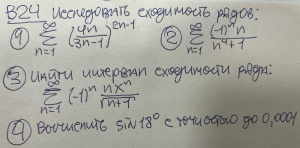 В24 Исследовать сходимость рядов:
① ∞∑n=1 (4n/3n-1)^2n-1 ② ∞∑n=1 (-1)^n n/n^4+1
③ Найти интервал сходимости ряда:
∞∑n=1 (-1)^n nx^n/√n+1
④ Вычислить sin 18° с точностью до 0,0001